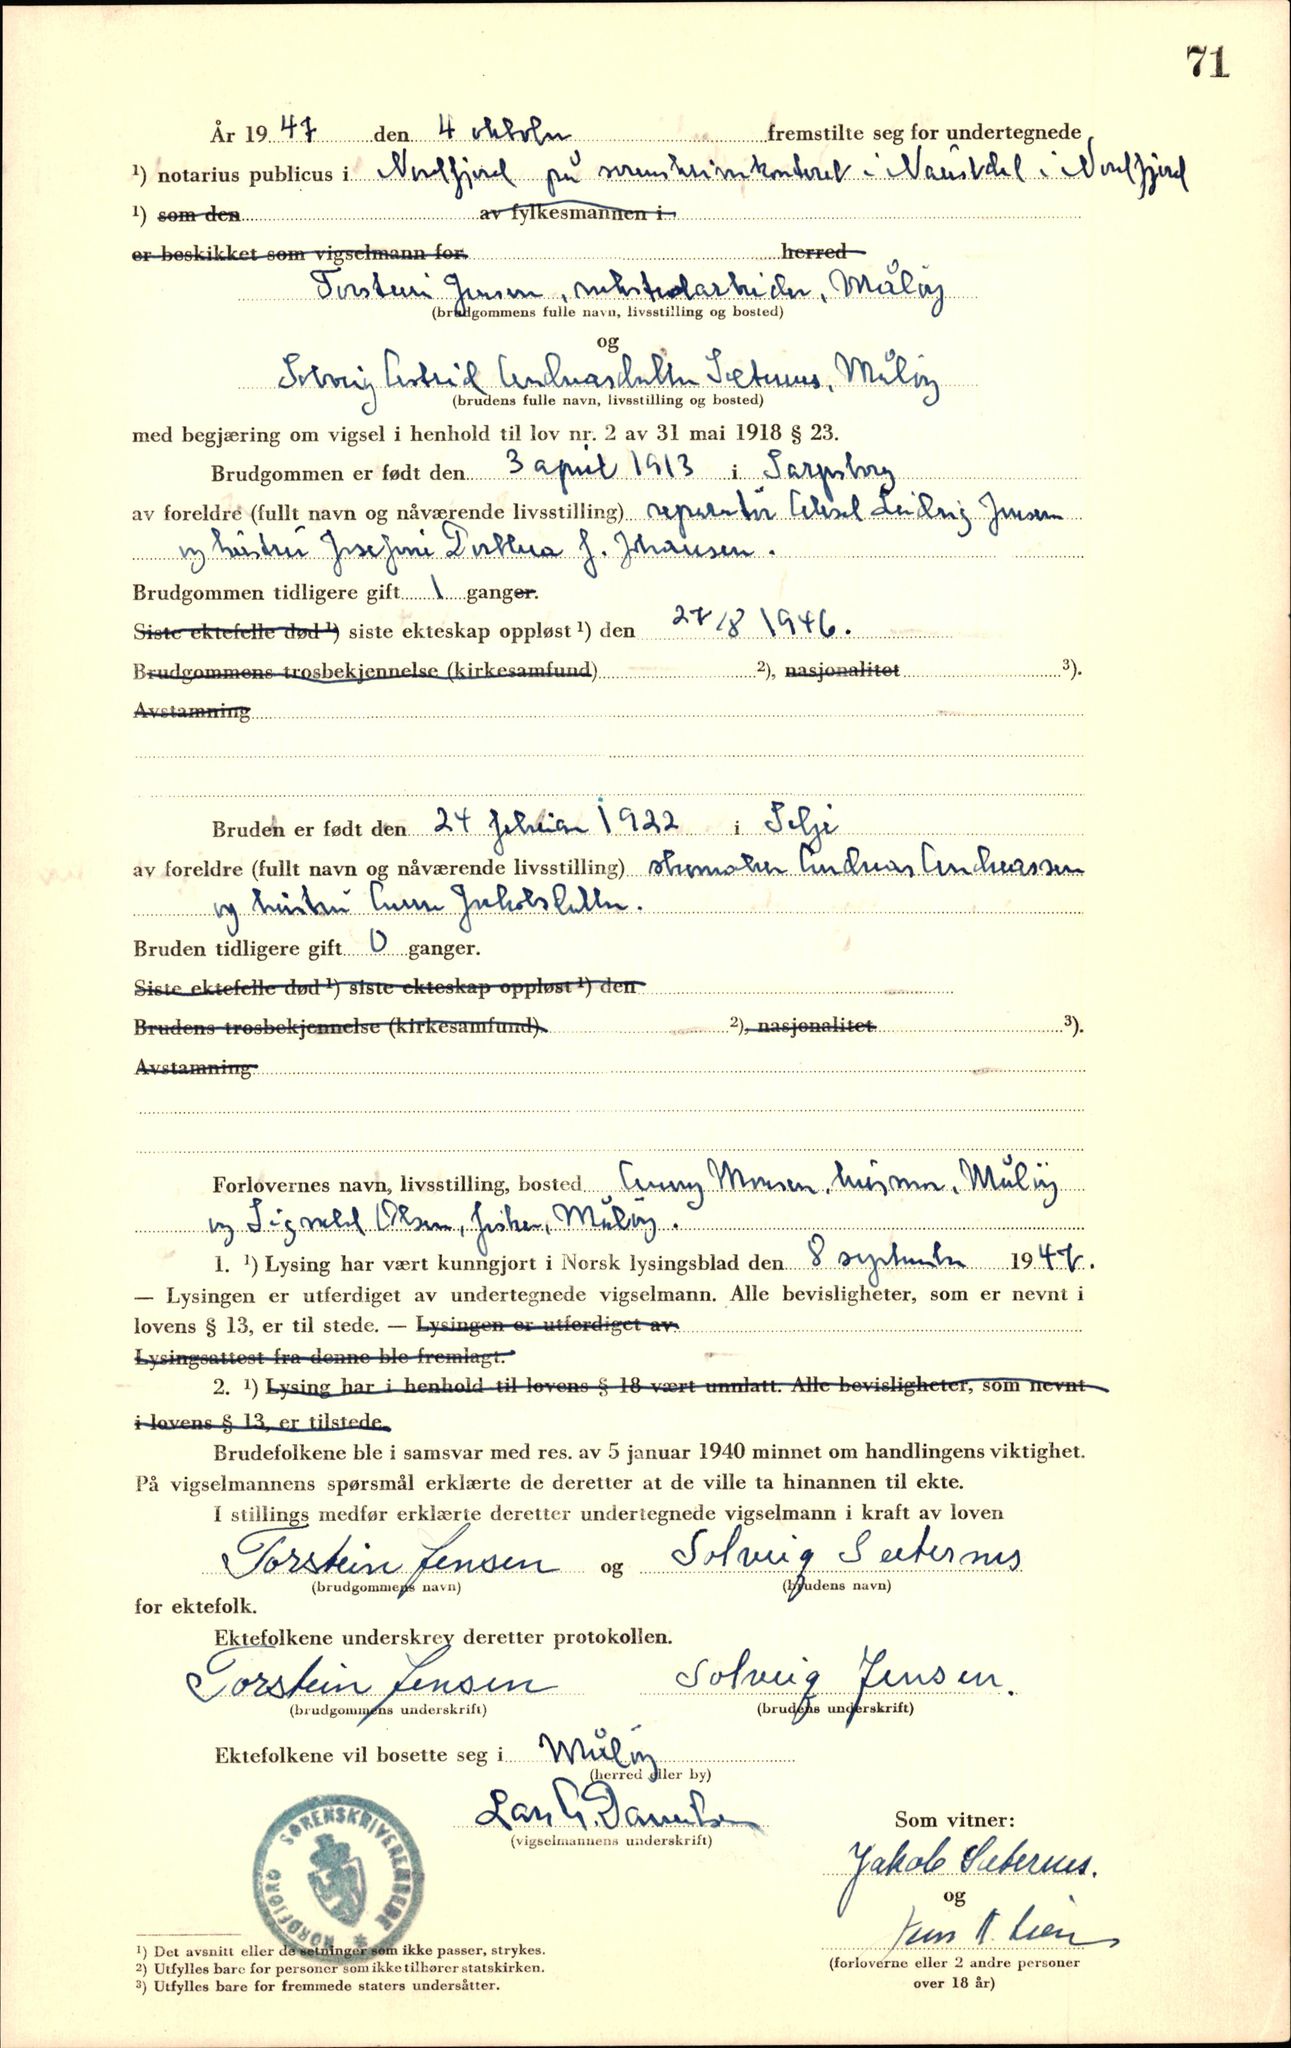 71
År 19 47 den 4 oktober fremstilte seg for undertegnede
¹) notarius publicus i Nordfjord på sorenskriverkontoret i Naustdal i Nordfjord
¹) som den av fylkesmannen i
er beskikket som vigselmann for herred
Torstein Jensen, verkstedarbeider, Måløy
(brudgommens fulle navn, livsstilling og bosted)
og
Solveig Astrid Andreasdatter Sæternes, Måløy
(brudens fulle navn, livsstilling og bosted)
med begjæring om vigsel i henhold til lov nr. 2 av 31 mai 1918 § 23.
Brudgommen er født den 3 april 1913 i Sarpsborg
av foreldre (fullt navn og nåværende livsstilling) reparatør Aksel Ludvig Jensen
og hustru Josefine Dorthea f. Johansen.
Brudgommen tidligere gift 1 ganger.
Siste ektefelle død ¹) siste ekteskap oppløst ¹) den 27/8 1946.
Brudgommens trosbekjennelse (kirkesamfund) ²), nasjonalitet ³).
Avstamning
Bruden er født den 24 februar 1922 i Selje
av foreldre (fullt navn og nåværende livsstilling) skomaker Andreas Andreassen
og hustru Anna Jakobsdatter.
Bruden tidligere gift 0 ganger.
Siste ektefelle død ¹) siste ekteskap oppløst ¹) den
Brudens trosbekjennelse (kirkesamfund) ²), nasjonalitet ³).
Avstamning
Forlovernes navn, livsstilling, bosted Anny Monsen, husmor, Måløy
og Sigvald Olsen, fisker, Måløy.
1. ¹) Lysing har vært kunngjort i Norsk lysingsblad den 8 september 1947.
— Lysingen er utferdiget av undertegnede vigselmann. Alle bevisligheter, som er nevnt i
lovens § 13, er til stede. — Lysingen er utferdiget av
Lysingsattest fra denne ble fremlagt.
2. ¹) Lysing har i henhold til lovens § 18 vært unnlatt. Alle bevisligheter, som nevnt
i lovens § 13, er tilstede.
Brudefolkene ble i samsvar med res. av 5 januar 1940 minnet om handlingens viktighet.
På vigselmannens spørsmål erklærte de deretter at de ville ta hinannen til ekte.
I stillings medfør erklærte deretter undertegnede vigselmann i kraft av loven
Torstein Jensen og Solveig Sæternes
(brudgommens navn) (brudens navn)
for ektefolk.
Ektefolkene underskrev deretter protokollen.
Torstein Jensen Solveig Jensen.
(brudgommens underskrift) (brudens underskrift)
Ektefolkene vil bosette seg i Måløy
(herred eller by)
Lars G. Danielsen
(vigselmannens underskrift)
Som vitner:
Jakob Sæternes.
og
Lien
(forloverne eller 2 andre personer
over 18 år)
SØRENSKRIVEREMBEDE * NORDFJORD
¹) Det avsnitt eller de setninger som ikke passer, strykes.
²) Utfylles bare for personer som ikke tilhører statskirken.
³) Utfylles bare for fremmede staters undersåtter.